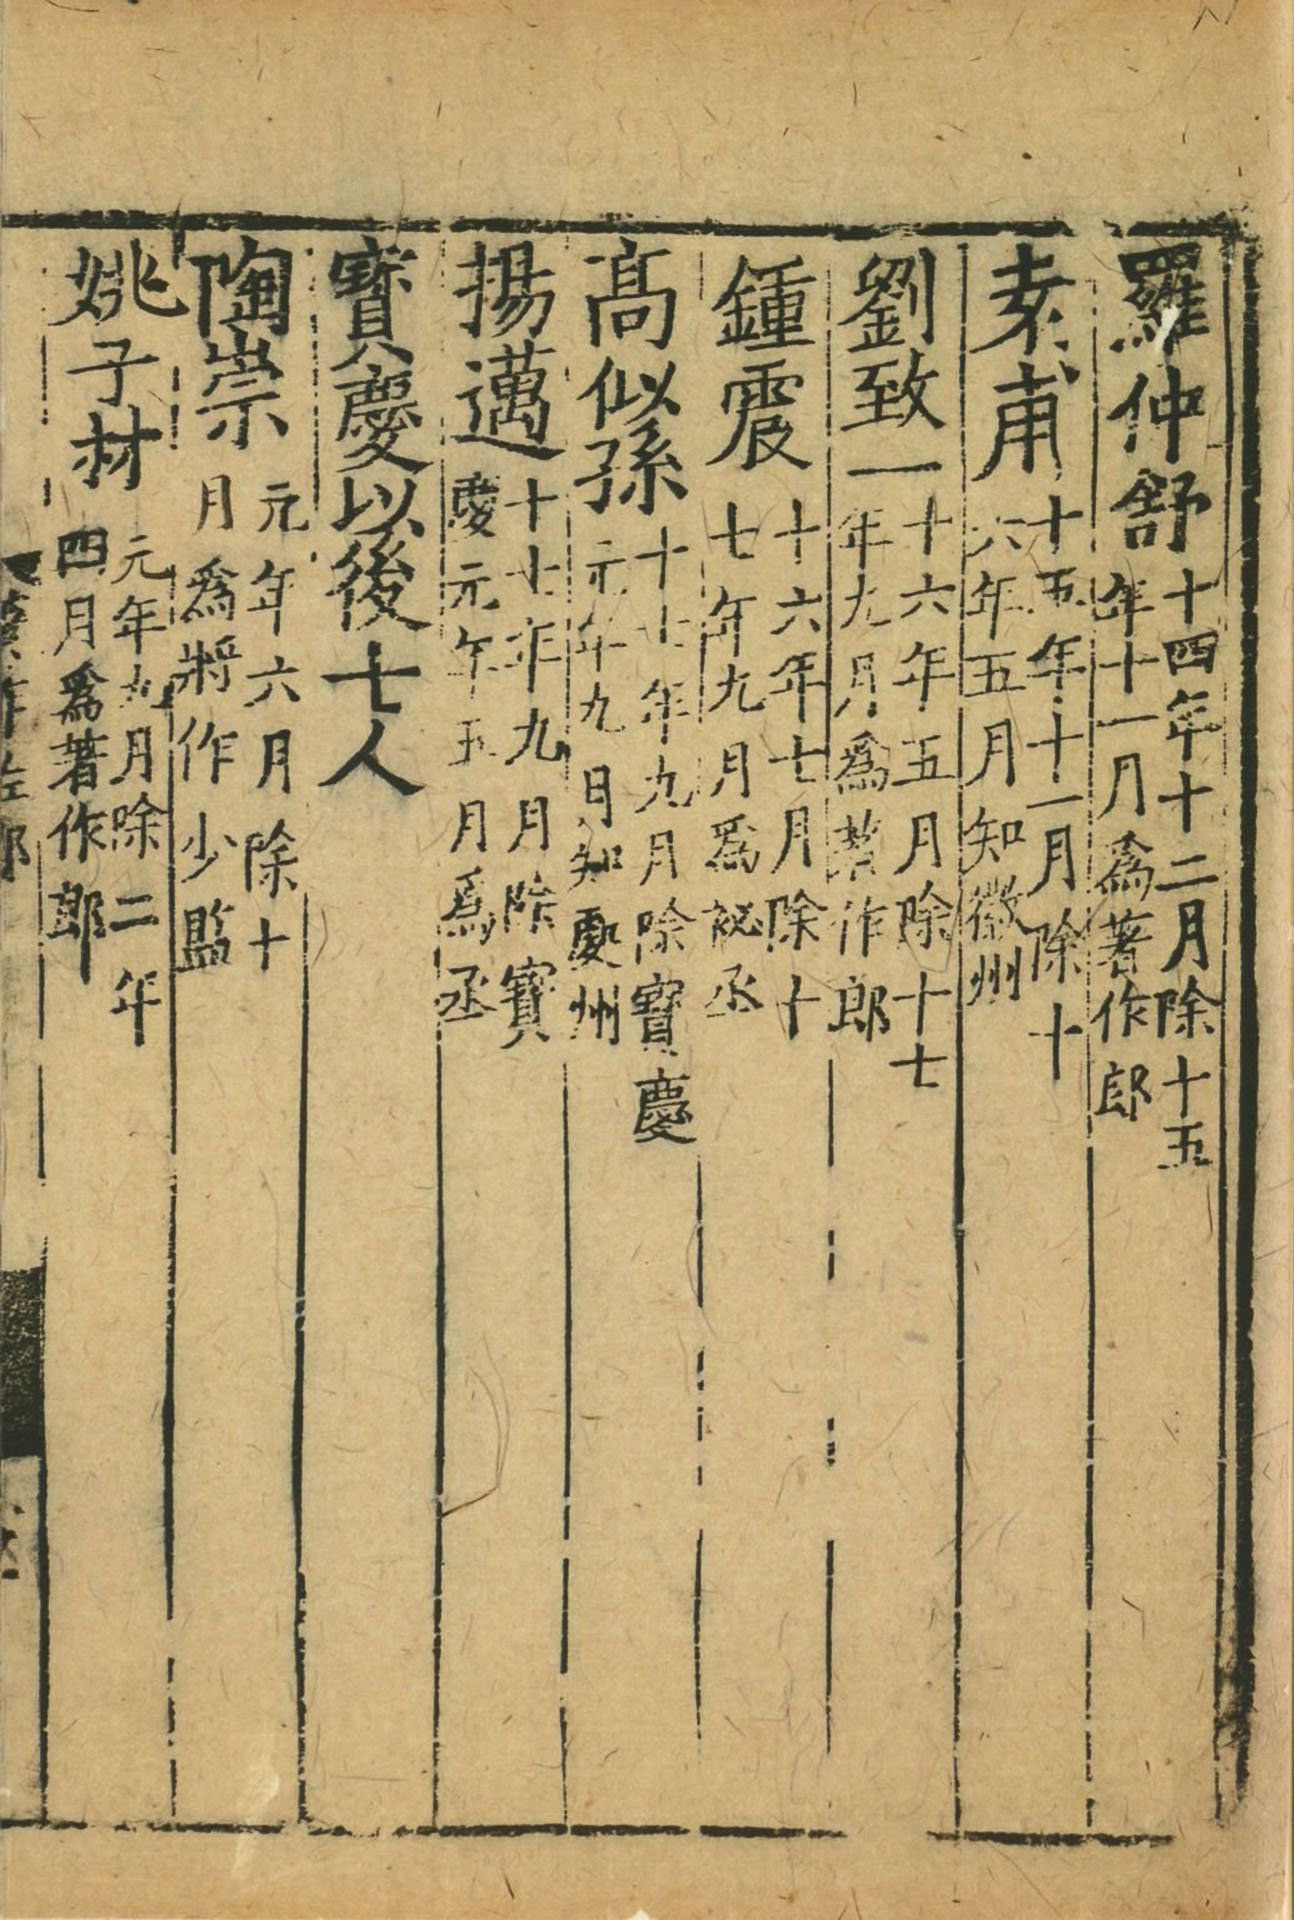 羅仲舒十四年十二月除十五年十一月爲著作郎
袁甫十五年十一月除十六年五月知徽州
劉致一十六年五月除十七年九月爲著作郎
鍾震十六年七月除十七年九月爲祕丞
高似孫十七年九月除寶慶元年九日知處州
揚邁十七年九月除寶慶元年五月爲丞
寶慶以後七人
陶崇元年六月除十月爲將作少監
姚子材元年九月除二年四月爲著作郎